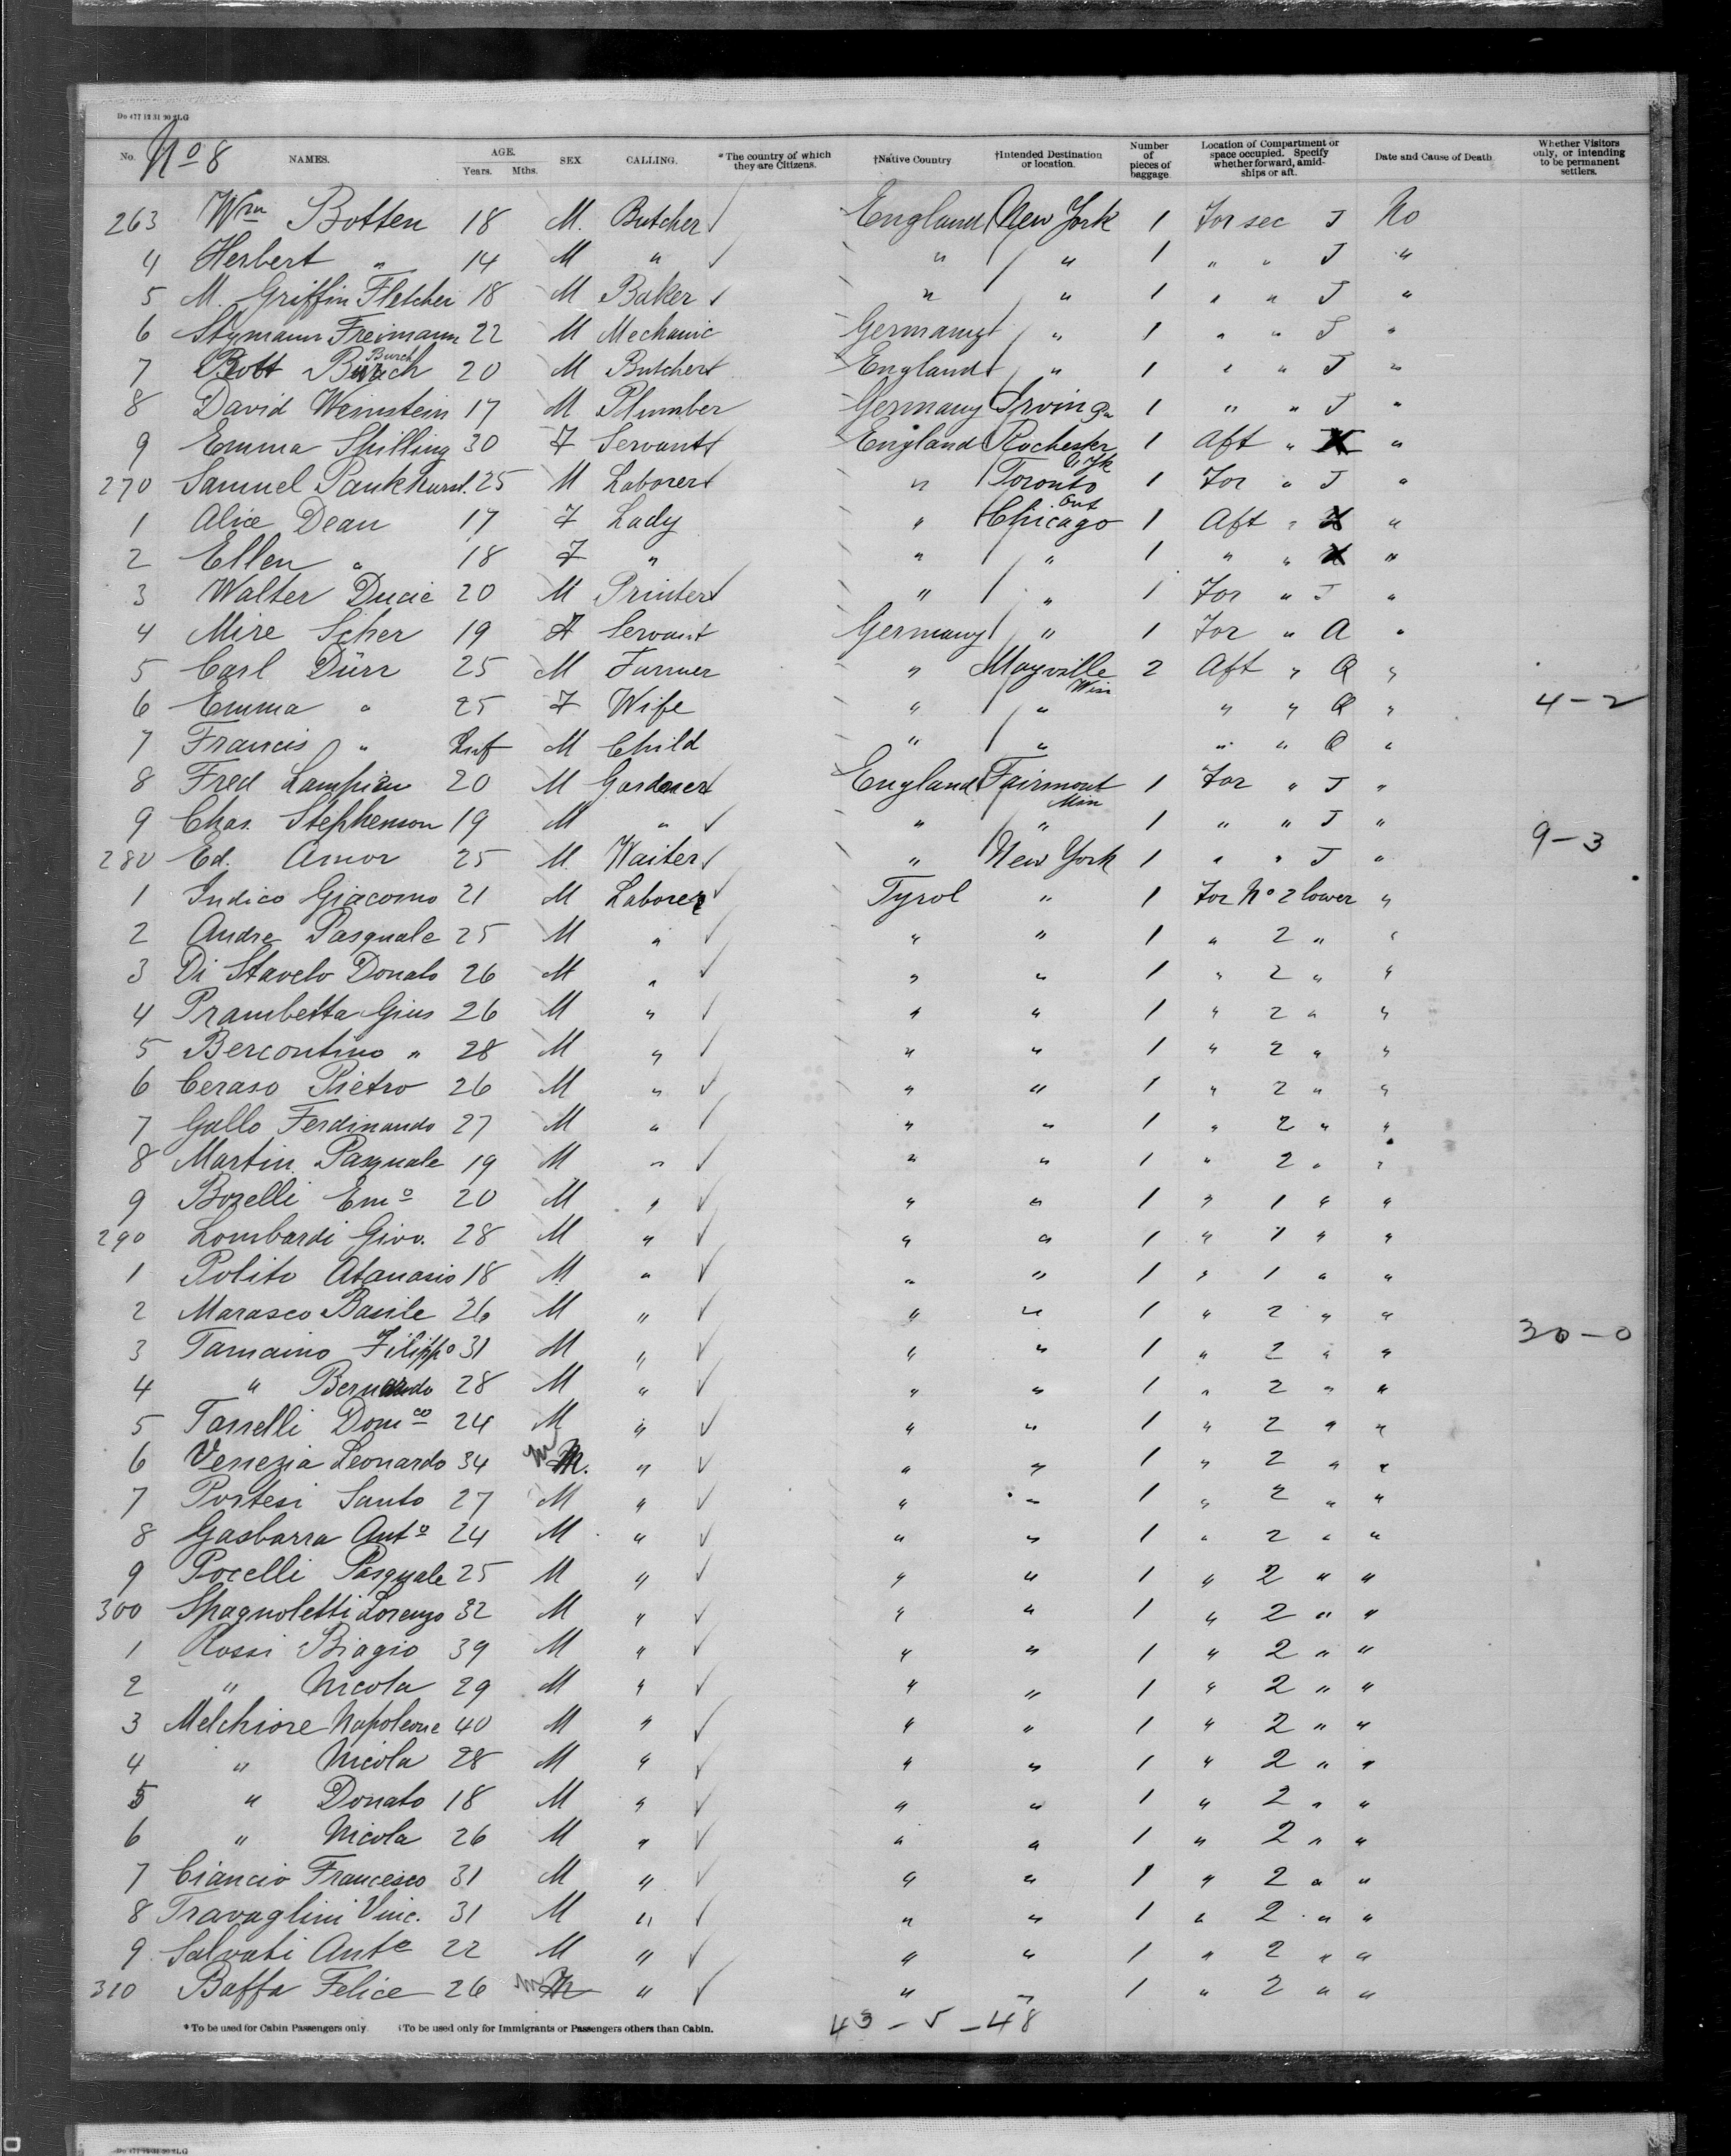 Do 477 12 31 90 SLG
No. Nº 8 NAMES. AGE. Years. Mths. SEX CALLING. *The country of which they are Citizens. †Native Country †Intended Destination or location. Number of pieces of baggage Location of Compartment or space occupied. Specify whether forward, amidships or aft. Date and Cause of Death. Whether Visitors only, or intending to be permanent settlers.
263 Wm Botten 18 M. Butcher ✓ England New York 1 For sec J No
4 Herbert " 14 M " ✓ " " 1 " " J "
5 M. Griffin Fletcher 18 M Baker ✓ " " 1 " " J "
6 Freimann 22 M Mechanic Germany " 1 " " J "
7 Robt Burch Burch 20 M Butcher England " 1 " " J "
8 David Weinstein 17 M Plumber Germany Irving 1 " " J "
9 Emma Shilling 30 F Servant England Rochester N Yk 1 Aft " "
270 Samuel Pankhurst. 25 M Laborer " Toronto Ont 1 For " J "
1 Alice Dean 17 F Lady " Chicago 1 Aft " "
2 Ellen " 18 F " " " 1 " " "
3 Walter Ducie 20 M Printer " " 1 For " J "
4 Mire Scher 19 F Servant Germany " 1 For " A "
5 Carl Dürr 25 M Farmer " Mayville Win 2 Aft " Q "
6 Emma " 25 F Wife " " " " Q " 4 - 2
7 Francis " Inf M Child " " " " Q "
8 Fred 20 M Gardener England Fairmont Min 1 For " J "
9 Chas. Stephenson 19 M " ✓ " " 1 " " J "
280 Ed. Amor 25 M. Waiter ✓ " New York 1 " " J " 9 - 3
1 Indico Giacomo 21 M Laborer ✓ Tyrol " 1 For No 2 lower "
2 Andre Pasquale 25 M " ✓ " " 1 " 2 " "
3 Di Stavelo Donato 26 M " ✓ " " 1 " 2 " "
4 Prambetta Gius 26 M " ✓ " " 1 " 2 " "
5 Bercontino " 28 M " ✓ " " 1 " 2 " "
6 Ceraso Pietro 26 M " ✓ " " 1 " 2 " "
7 Gallo Ferdinando 27 M " ✓ " " 1 " 2 " "
8 Martin Pasquale 19 M " ✓ " " 1 " 2 " "
9 Borelli Emo 20 M " ✓ " " 1 " 1 " "
290 Lombardi Giov. 28 M " ✓ " " 1 " 1 " "
1 Polito Atanasio 18 M " ✓ " " 1 " 1 " "
2 Marasco Basile 26 M " ✓ " " 1 " 2 " "
3 Tamaino Filippo 31 M " ✓ " " 1 " 2 " " 30 - 0
4 " Bernardo 28 M " ✓ " " 1 " 2 " "
5 Tarrelli Domco 24 M " ✓ " " 1 " 2 " "
6 Venezia Leonardo 34 M " ✓ " " 1 " 2 " "
7 Portesi Santo 27 M " ✓ " " 1 " 2 " "
8 Gasbarra Anto 24 M " ✓ " " 1 " 2 " "
9 Pocelli Pasquale 25 M " ✓ " " 1 " 2 " "
300 Spagnoletti Lorenzo 32 M " ✓ " " 1 " 2 " "
1 Rossi Biagio 39 M " ✓ " " 1 " 2 " "
2 " Nicola 29 M " ✓ " " 1 " 2 " "
3 Melchiore Napoleone 40 M " ✓ " " 1 " 2 " "
4 " Nicola 28 M " ✓ " " 1 " 2 " "
5 " Donato 18 M " ✓ " " 1 " 2 " "
6 " Nicola 26 M " ✓ " " 1 " 2 " "
7 Ciancio Francesco 31 M " ✓ " " 1 " 2 " "
8 Travaglini Vinc. 31 M " ✓ " " 1 " 2 " "
9 Salvati Anto 22 M " ✓ " " 1 " 2 " "
310 Baffa Felice 26 M " ✓ " " 1 " 2 " "
* To be used for Cabin Passengers only †To be used only for Immigrants or Passengers others than Cabin. 43 - 5 - 48